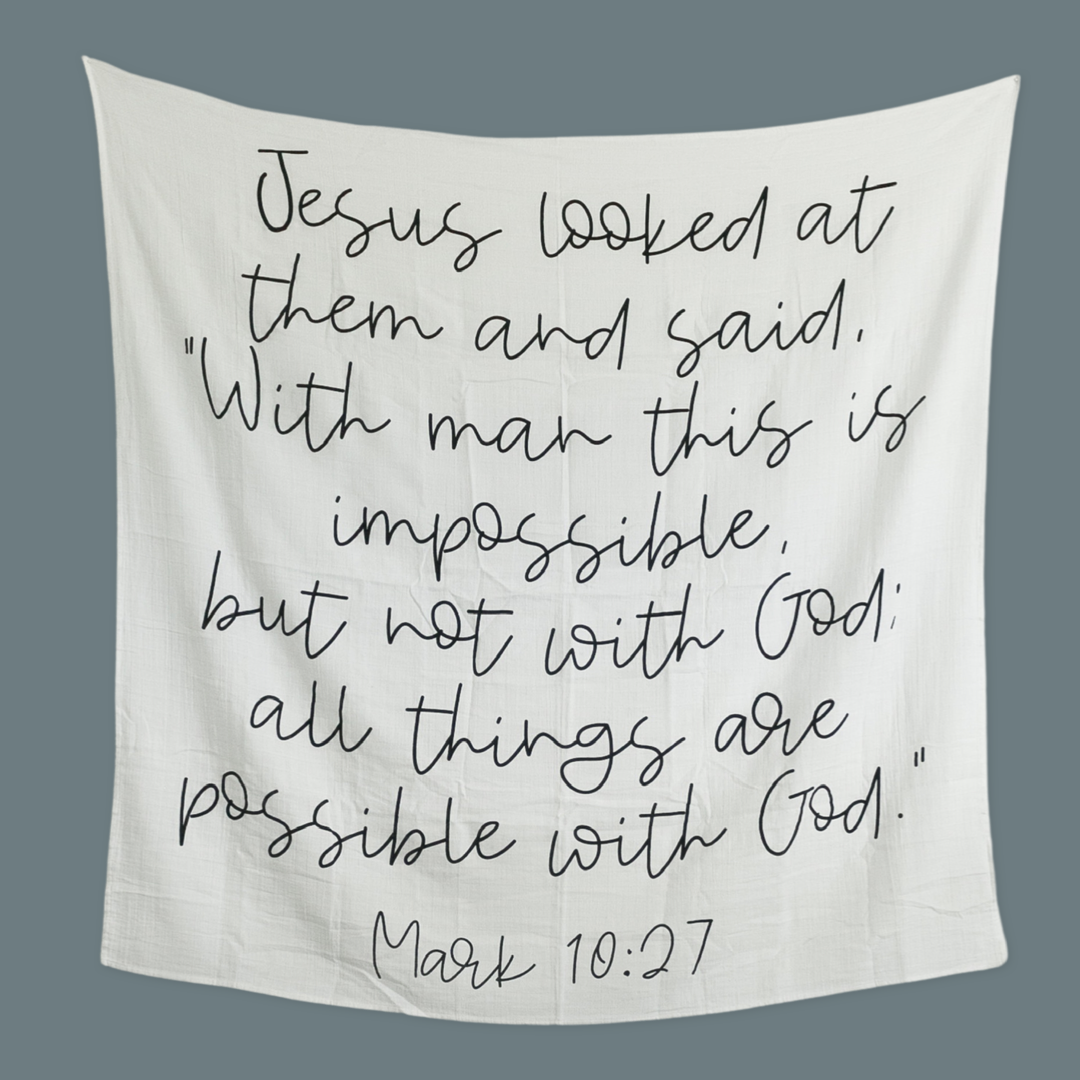 Jesus looked at
them and said,
"With man this is
impossible,
but not with God;
all things are
possible with God."
Mark 10:27